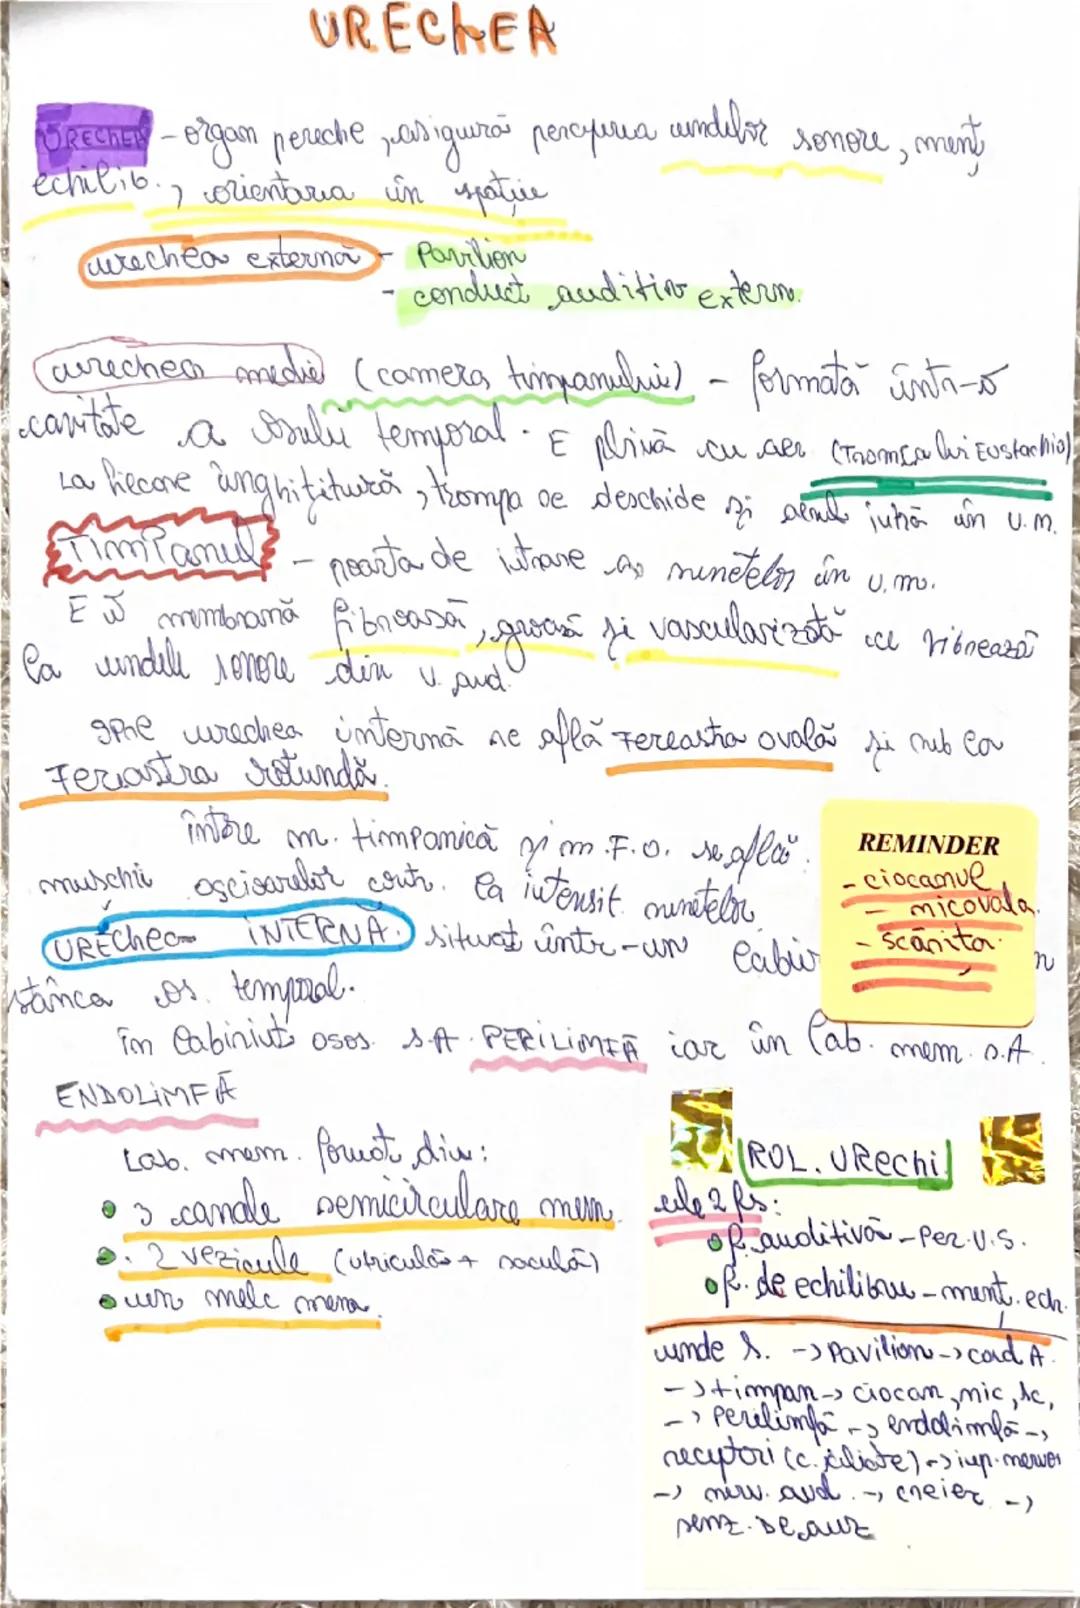 URECHEA
URECHEA - organ pereche, asigură perceperea undelor sonore, menț
echilib., orientarea în spațiu
urechea externă - Pavilion
- conduct auditiv extern.
urechea medie (camera timpanului) - formată într-o
cavitate a osului temporal. E plină cu aer (Trompa lui Eustachio)
La fiecare înghițitură, trompa se deschide și aerul intră în U.M.
Timpanul - poarta de intrare a sunetelor în U.m.
E o membrană fibroasă, groasă și vascularizată ce vibrează
la undele sonore din u. aud.
Spre urechea internă se află Fereastra ovală și sub ea
Fereastra rotundă.
între m. timpanică și m. F.O. se află
mușchii oscioarelor contr. la intensit. sunetelor
URECHea INTERNĂ situat într-un
stânca os. temporal.
în labirint osos s.A. PERILIMFĂ iar în lab. mem. s.A.
ENDOLIMFĂ
Lab. mem. format din:
• 3 canale semicirculare mem
• 2 vezicule (utriculă + saculă)
• un melc mem.
REMINDER
- ciocanul
- nicovala
- scărița
ROL. URechi
ele 2 fs:
• f. auditivă - Per.U.S.
• f. de echilibru - menț. ech.
unde s. -> Pavilion -> cond A.
-> timpan -> ciocan, nic, sc,
-> Perilimfă -> endolimfă ->
receptori (c. ciliate) -> imp. nervos
-> nerv. aud. -> creier ->
senz. de auz